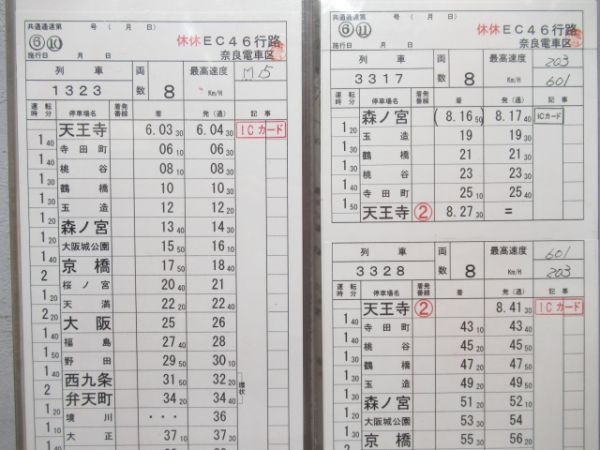 共通過速第 号 ( 月 日)
⑥⑩ 休休EC46行路
施行日 月 日 奈良電車区
列車 両数 最高速度 M15
1323 8 Km/H
運転時分 停車場名 着発番線 着 発(通) 記事
天王寺 6.03 30 6.04 30 ICカード
1 40
寺田町 06 10 06 30
1 40
桃谷 08 10 08 30
1 40
鶴橋 10 10 10 30
1 30
玉造 12 12 20
1 20
森ノ宮 13 40 14 30
1 30
大阪城公園 15 50 16 10
1 40
京橋 17 50 18 40
2
桜ノ宮 20 40 21
1
天満 22 20 22 40
2
大阪 25 26
1 40
福島 27 40 28
1 50
野田 29 50 30 10
1 40
西九条 31 50 32 20
2
弁天町 34 20 34 40 環状
境川 ・・・ 36
大正 37 10 37 30
共通過速第 号 ( 月 日)
⑥⑪ 休休EC46行路
施行日 月 日 奈良電車区
列車 両数 最高速度 203
3317 8 Km/H 601
運転時分 停車場名 着発番線 着 発(通) 記事
森ノ宮 (8.16 50) 8.17 40 ICカード
1 20
玉造 19 19 30
1 30
鶴橋 21 21 30
1 30
桃谷 23 23 30
1 40
寺田町 25 10 25 40
1 50
天王寺 ② 8.27 30 =
列車 両数 最高速度 601
3328 8 Km/H 203
運転時分 停車場名 着発番線 着 発(通) 記事
天王寺 ② 8.41 30 ICカード
1 40
寺田町 43 10 43 40
1 40
桃谷 45 20 45 50
1 30
鶴橋 47 20 47 50
1 30
玉造 49 20 49 50
1 30
森ノ宮 51 20 52 10
大阪城公園 53 30 54
京橋 55 30 56 20